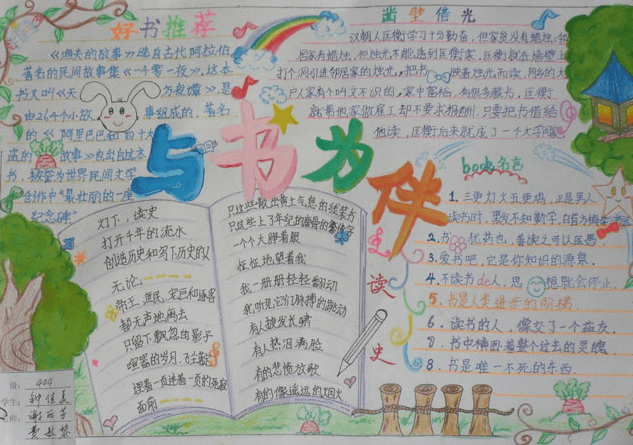 好书推荐
《渔夫的故事》选自古代阿拉伯
著名的民间故事集《一千零一夜》,这本
书又叫《天方夜谭》,是
由264个小故事组成的,著名
的《阿里巴巴和四十大
盗的故事》也出自这本
书,被誉为世界民间文学
创作中“最壮丽的一座
纪念碑”
凿壁借光
汉朝人匡衡学习十分勤奋,但家贫没有蜡烛,邻
居家有蜡烛,但烛光不能透到匡衡家,匡衡就在墙壁上
打个洞引进邻居家的烛光,把书映着烛光而读,同乡的大
户人家有个叫文不识的,家中富裕,有很多藏书,匡衡
就帮他家做雇工却不要求报酬,只要把书借给
他读,匡衡后来就成了一个大学
与书为伴
灯下,读史
打开千年的流水
创造历史和写下历史的人
无论
帝王、庶民、宠臣和逐客
都无声地离去
只留下飘忽的影子
喧嚣的岁月,飞尘
踩着一页连着一页的
面前
只这些散出黄土气息的线装书
只这些上了年纪的
一个大睁着眼
怔怔地望着我
我一册册轻轻翻动
我听见它们脉搏的跳动
有人披发长啸
有人热泪满脸
有的悲愤放歌
有的像遥远的烟火
读
史
book名言
1.三更灯火五更鸡,正是男人
读书时,黑发不知勤学
2.书犹药也,善读之可以医愚
3.爱书吧,它是你知识的源泉
4.不读书de人,思想就会停止。
5.书是人类进步的阶梯
6.读书的人,像交了一个益友。
7.书中横卧着整个过去的灵魂
8.书是唯一不死的东西
404
钟佳
谢